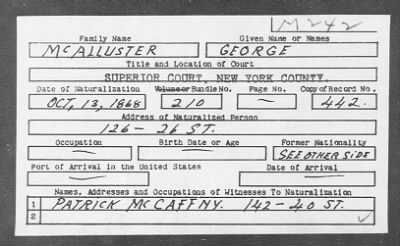 M242
Family Name Given Name or Names
McALLUSTER GEORGE
Title and Location of Court
SUPERIOR COURT, NEW YORK COUNTY.
Date of Naturalization Volume or Bundle No. Page No. Copy of Record No.
OCT, 13, 1868 210 — 442.
Address of Naturalized Person
126 - 26 ST.
Occupation Birth Date or Age Former Nationality
— — SEE OTHER SIDE
Port of Arrival in the United States Date of Arrival
— —
Names, Addresses and Occupations of Witnesses To Naturalization
1 PATRICK McCAFFNY. 142-40 ST.
2